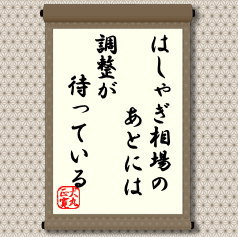 はしゃぎ相場の
あとには
調整が
待っている